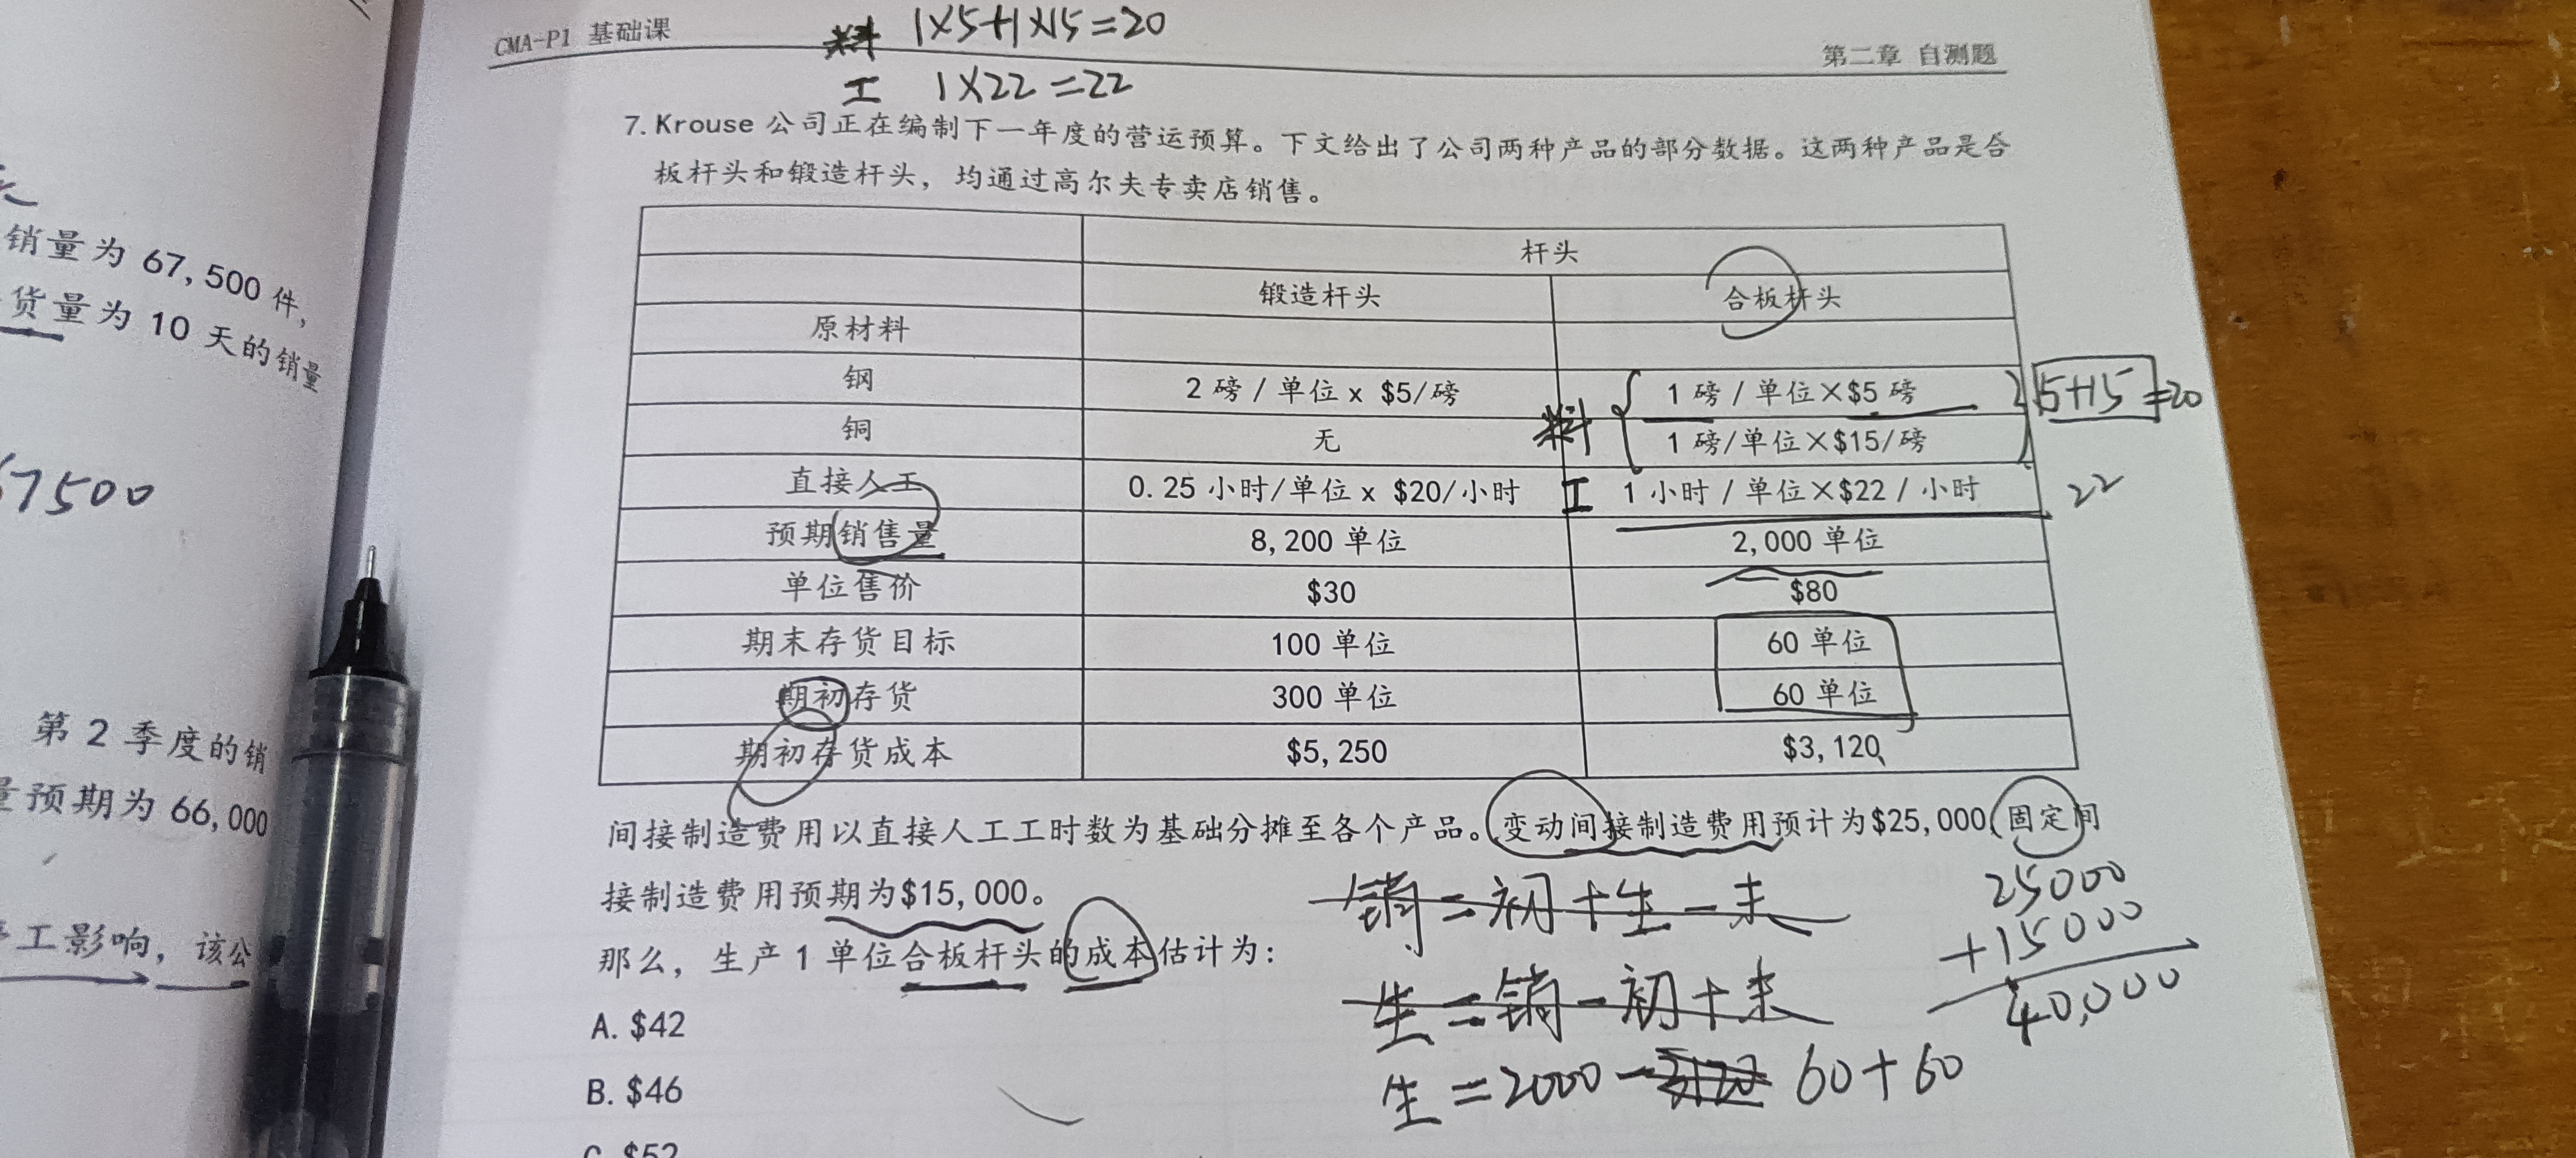 CMA-P1 基础课
料 1×5+1×15=20
第二章 自测题
工 1×22=22
7. Krouse 公司正在编制下一年度的营运预算。下文给出了公司两种产品的部分数据。这两种产品是合
板杆头和锻造杆头，均通过高尔夫专卖店销售。
杆头
锻造杆头 合板杆头
原材料
钢 2 磅 / 单位 x $5/磅 1 磅 / 单位×$5 磅 5+15=20
铜 无 料 1 磅/单位×$15/磅
直接人工 0.25 小时/单位 x $20/小时 工 1 小时 / 单位×$22 / 小时 22
预期销售量 8,200 单位 2,000 单位
单位售价 $30 $80
期末存货目标 100 单位 60 单位
期初存货 300 单位 60 单位
期初存货成本 $5,250 $3,120
间接制造费用以直接人工工时数为基础分摊至各个产品。变动间接制造费用预计为$25,000,固定间
接制造费用预期为$15,000。
那么，生产 1 单位合板杆头的成本估计为：
A. $42
B. $46
C. $52
销=初+生-末
生=销-初+末
生=2000- 60+60
25000
+15000
40,000
销量为 67,500 件,
货量为 10 天的销量
67500
第 2 季度的销
量预期为 66,000
工影响，该公